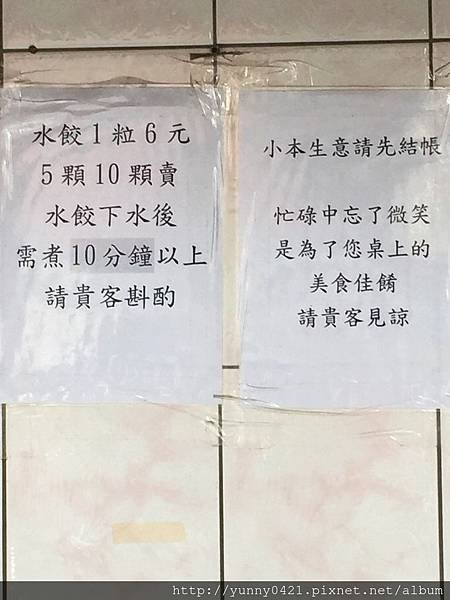 水餃1粒6元
5顆10顆賣
水餃下水後
需煮10分鐘以上
請貴客斟酌
小本生意請先結帳
忙碌中忘了微笑
是為了您桌上的
美食佳餚
請貴客見諒
http://yunny0421.pixnet.net/album